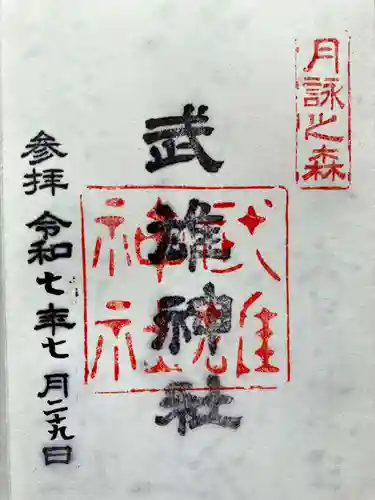 月詠之森
武雄神社
武雄神社
参拝 令和七年七月二十九日